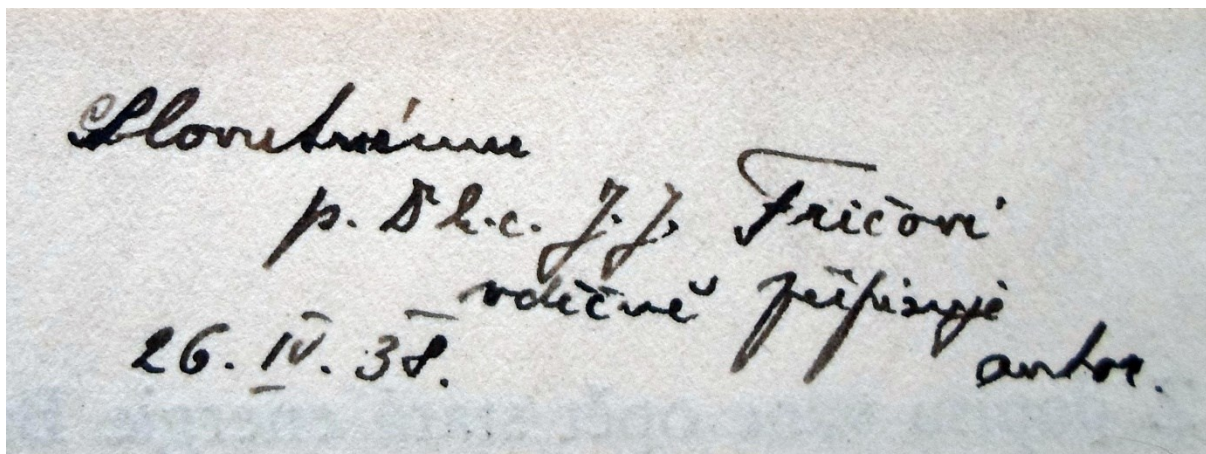 Slovutnému
p. Dr h.c. J. J. Fričovi
vděčně připisuje
26. IV. 38. autor.